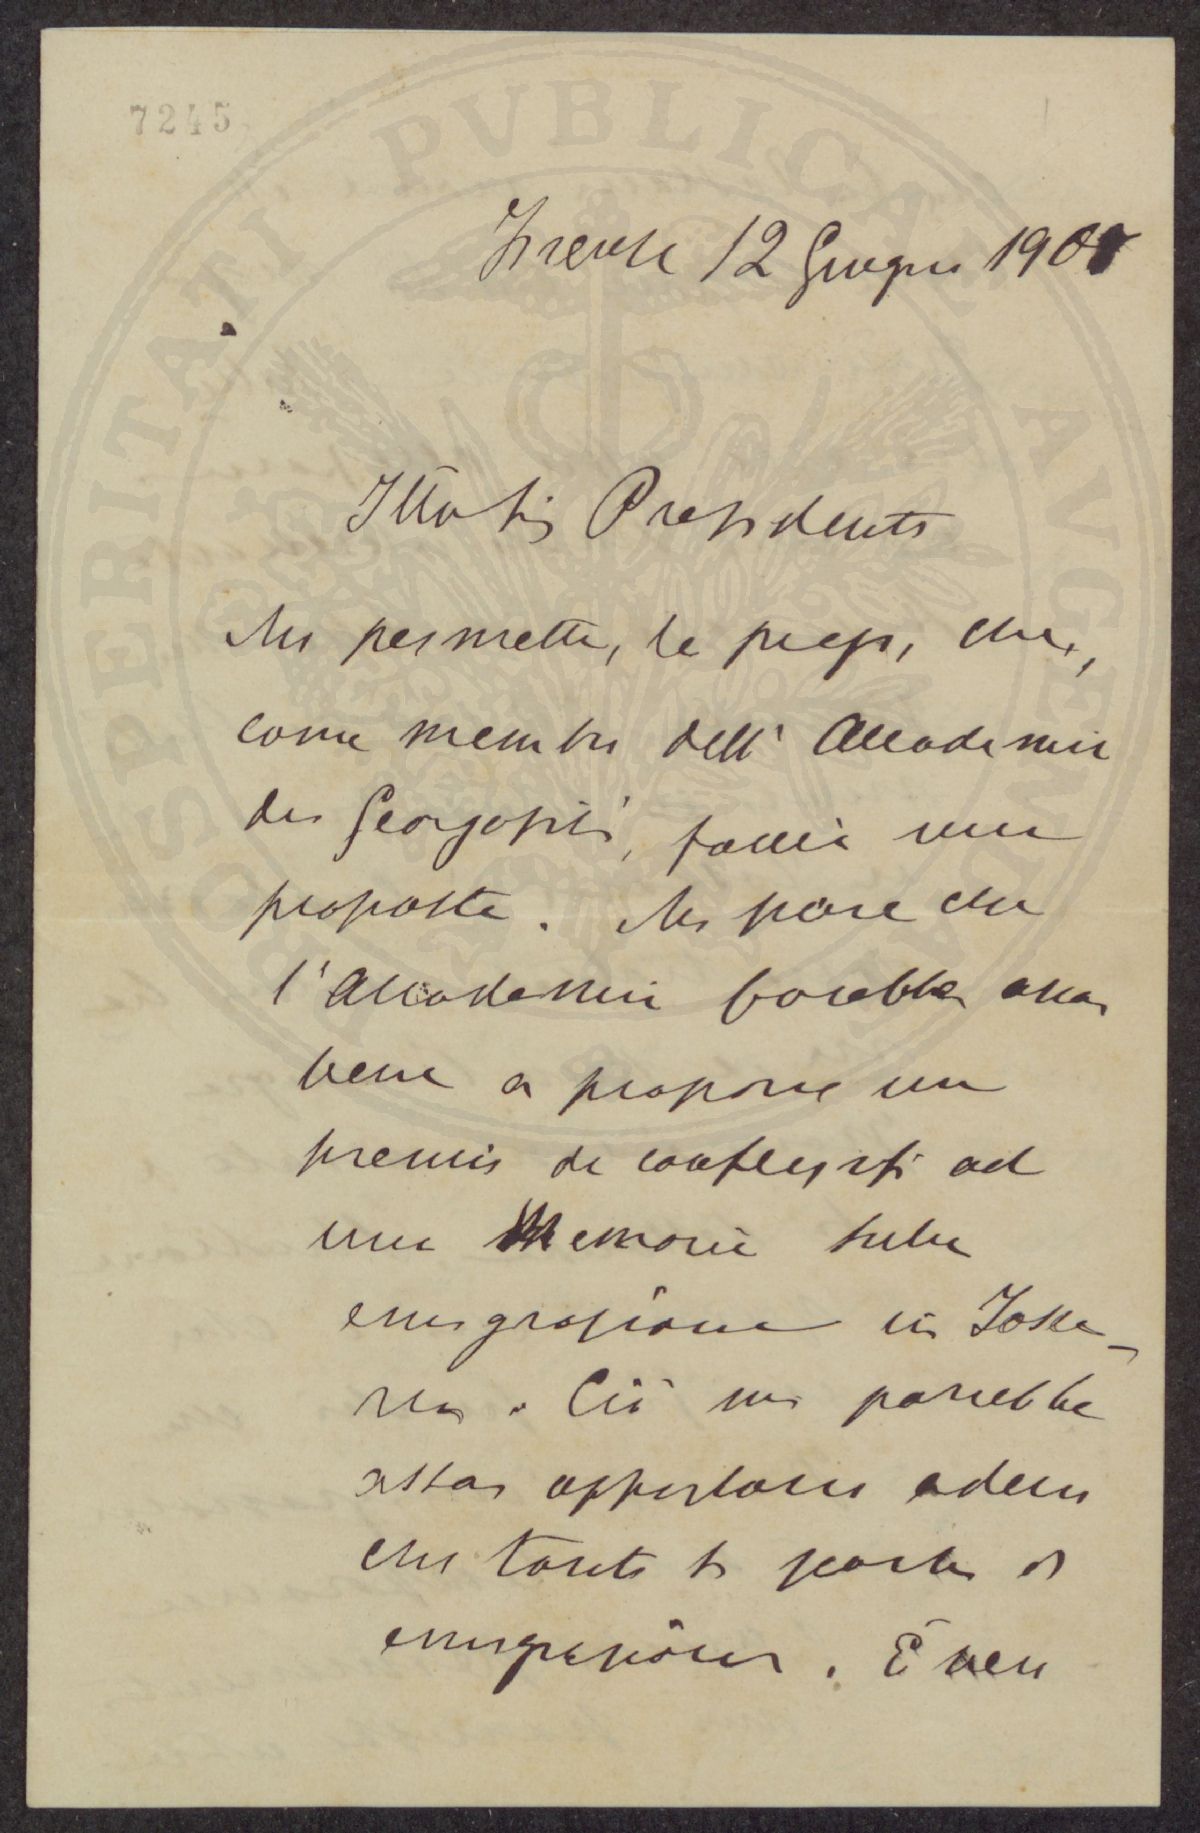 7245
PROSPERITATI PVBLICAE AVGENDAE
Firenze 12 Giugno
Presidente
Mi permetta, la prego, che,
come membro dell' Accademia
dei Georgofili, faccia una
proposta. Mi pare che
l'Accademia farebbe assai
bene a proporre un
premio da conferirsi ad
una Memoria sulla
emigrazione in Tosca-
na. Ciò mi parrebbe
assai opportuno adesso
che tanto si parla di
emigrazione. È ben